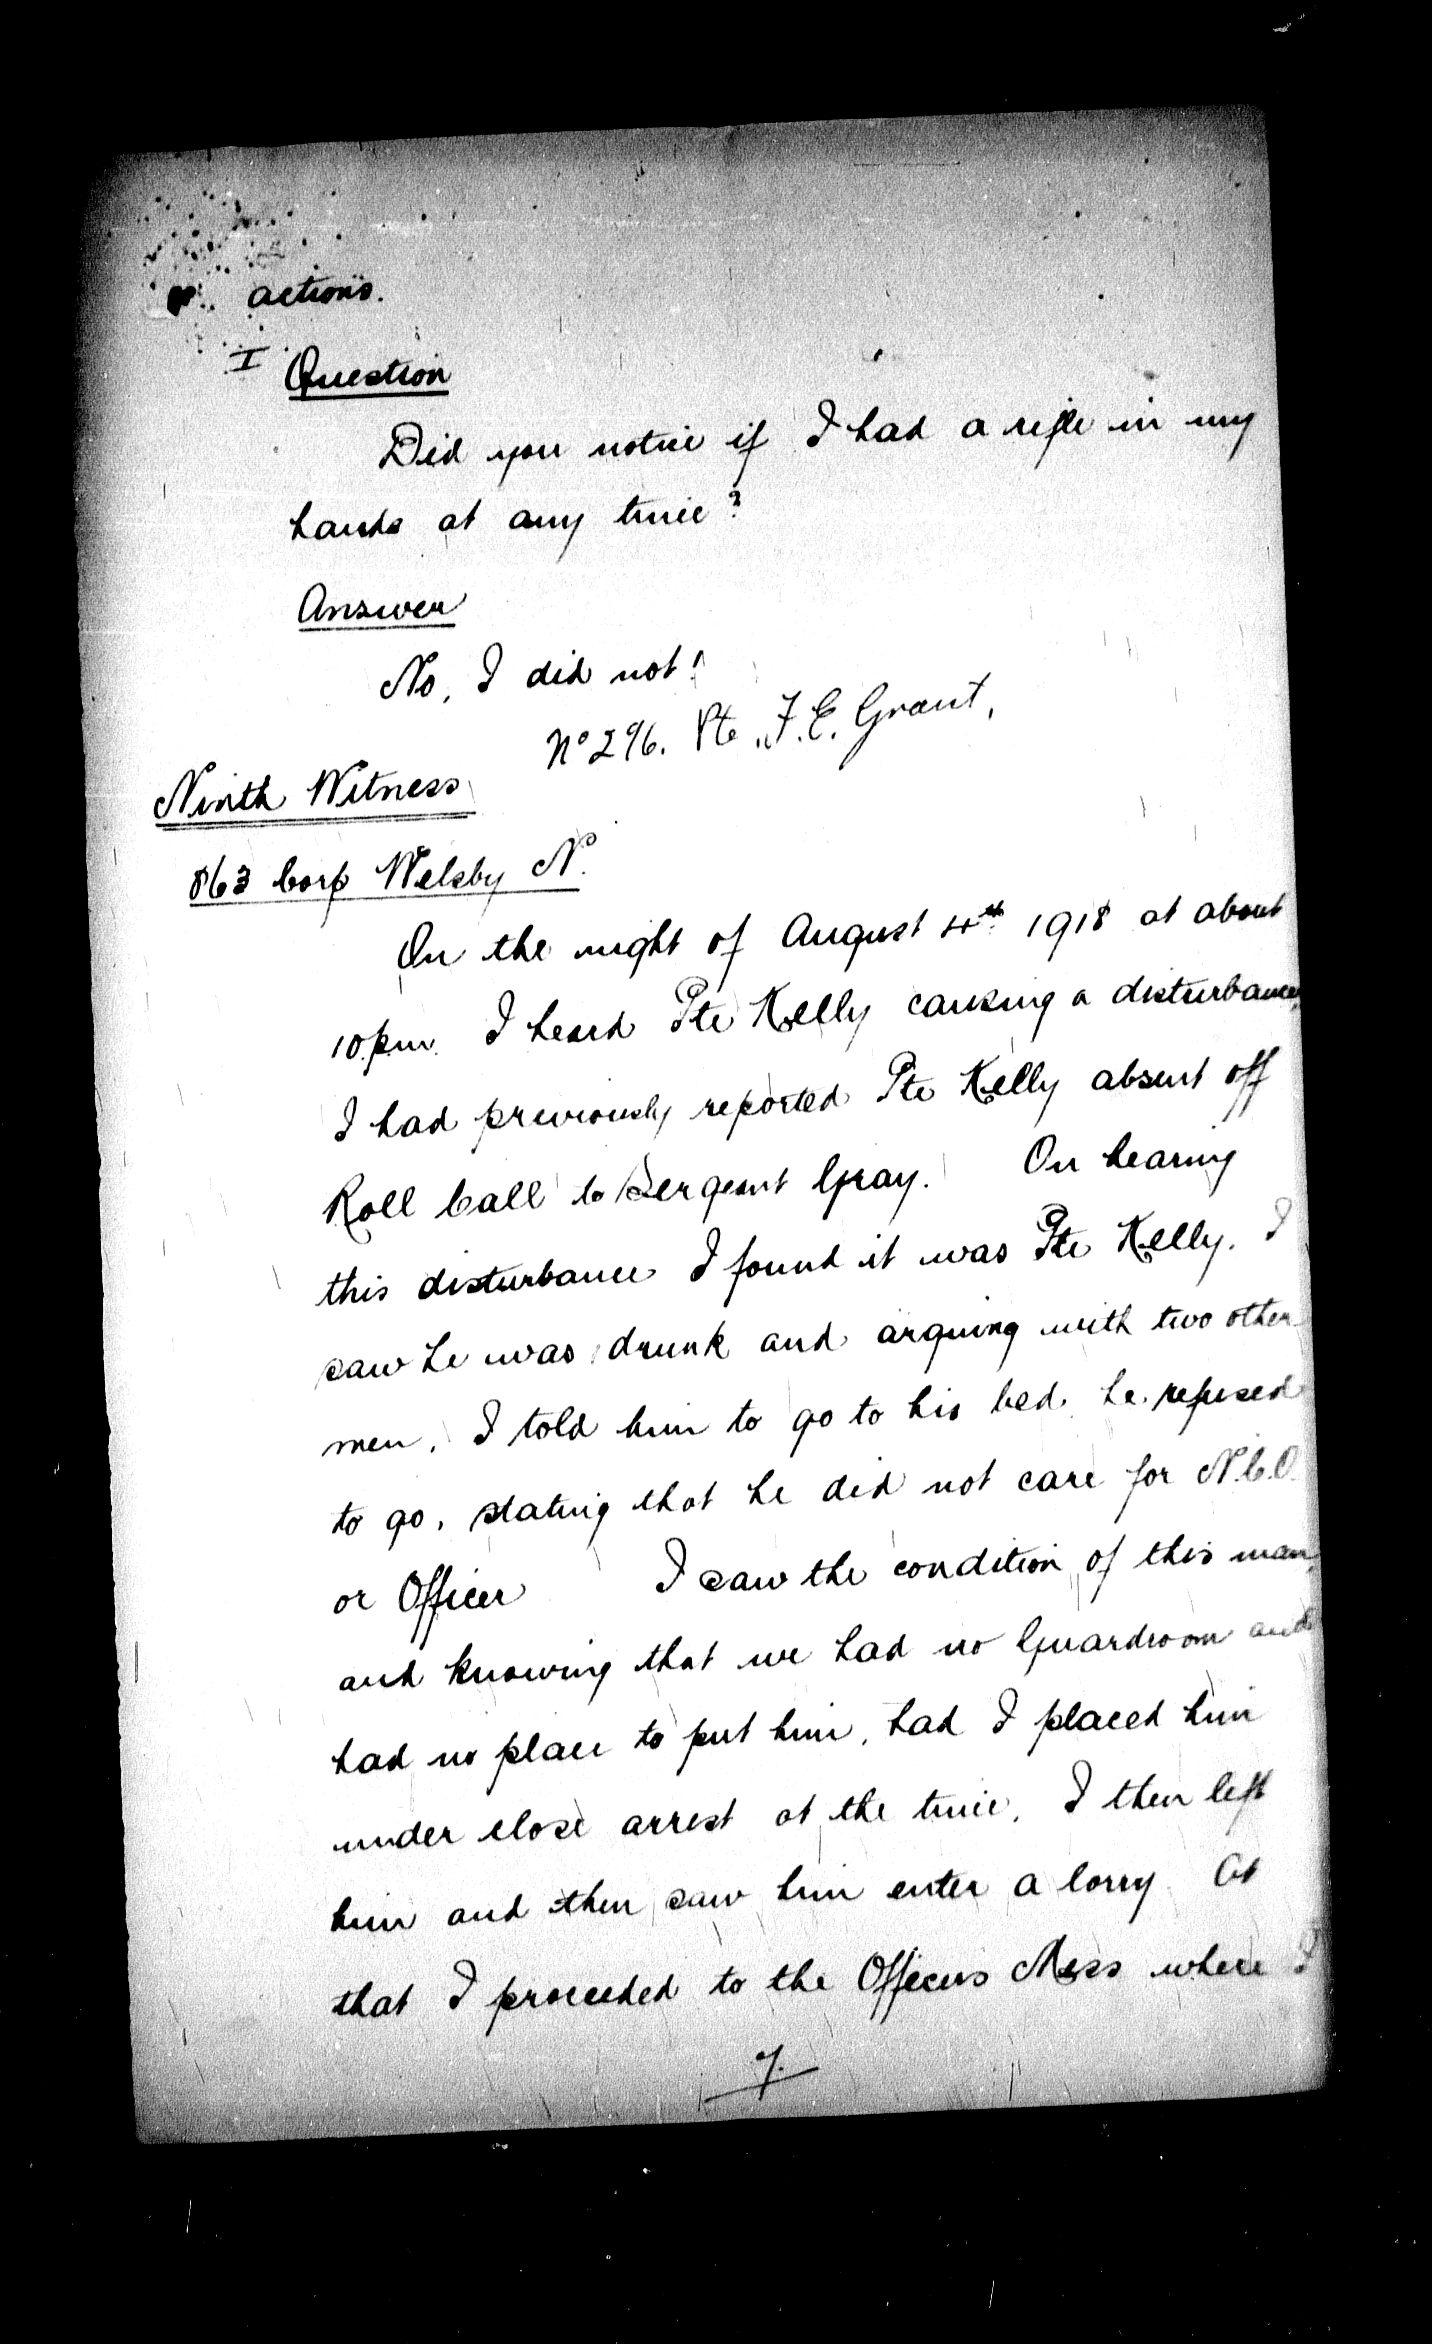 actions.
I Question
Did you notice if I had a rifle in my
hands at any time?
Answer
No, I did not!
No 296. Pte. F. E. Grant,
Ninth Witness
863 Corp Welsby N.
On the night of August 4th 1918 at about
10.pm. I heard Pte Kelly causing a disturbance,
I had previously reported Pte Kelly absent off
Roll Call to Sergeant Gray. On hearing
this disturbance I found it was Pte Kelly. I
saw he was drunk and arguing with two other
men. I told him to go to his bed he refused
to go, stating that he did not care for N.C.O.
or Officer I saw the condition of this man,
and knowing that we had no Guardroom and
had no place to put him, had I placed him
under close arrest at the time. I then left
him and then saw him enter a lorry At
that I proceeded to the Officers Mess where I
7.